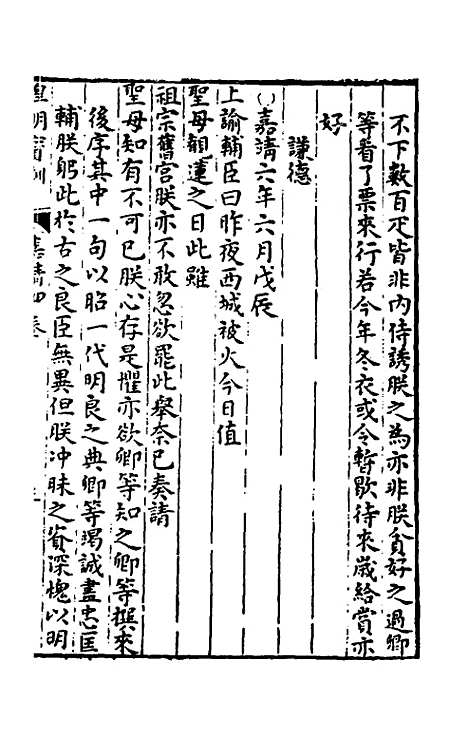 不下數百疋皆非內侍誘朕之為亦非朕貪好之過卿
等看了票來行若今年冬衣或令暫歇待來歲給賞亦
好
謙德
○嘉靖六年六月戊辰
上諭輔臣曰昨夜西城被火今日值
聖母觀蓮之日此雖
祖宗舊宮朕亦不敢忽欲罷此舉奈已奏請
聖母知有不可已朕心存是懼亦欲卿等知之卿等撰來
後序其中一句以昭一代明良之典卿等竭誠盡忠匡
輔朕躬此於古之良臣無異但朕冲昧之資深愧以明
皇明寶訓 嘉靖四卷